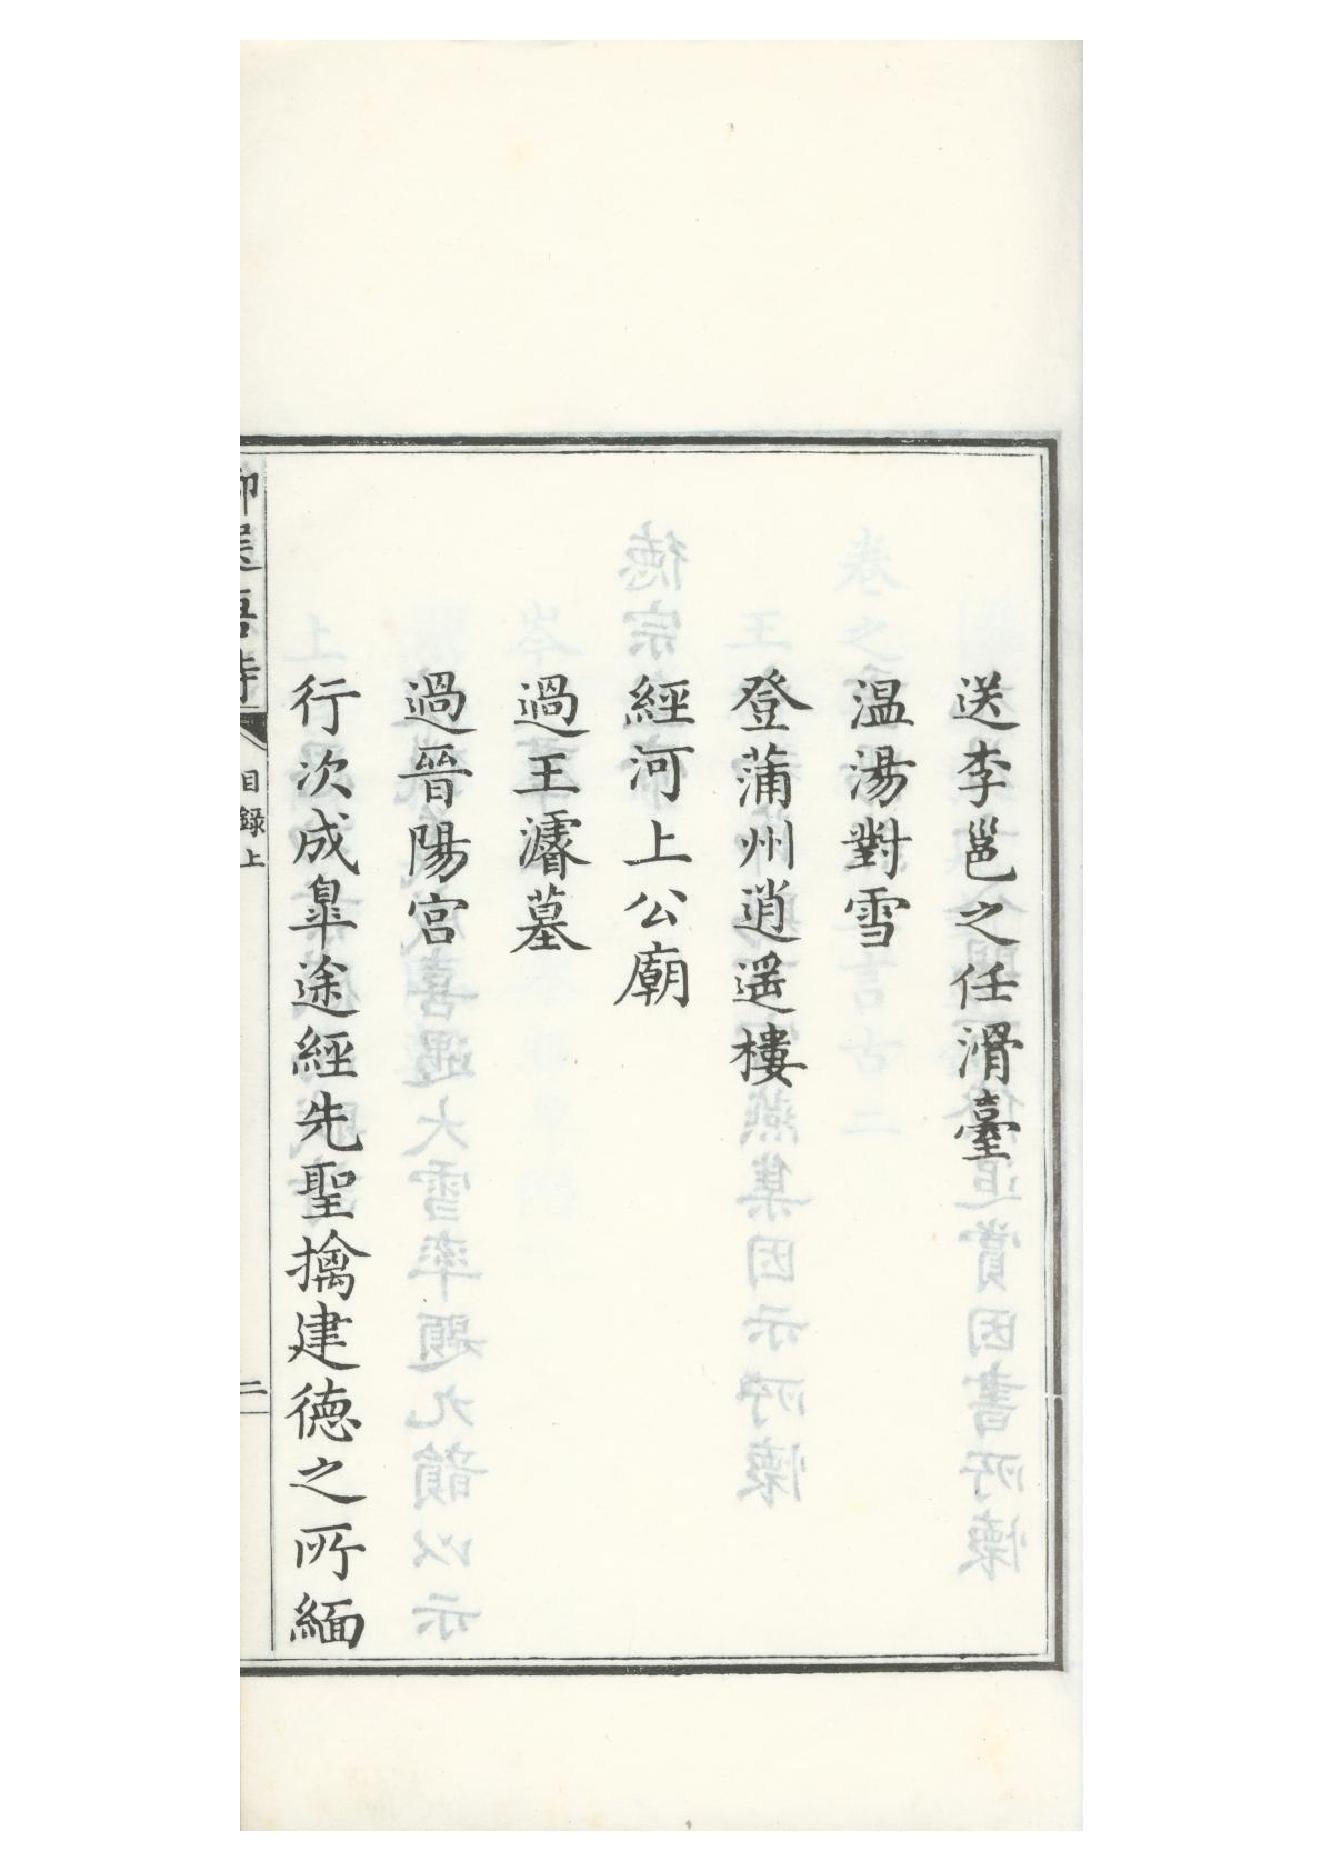 送李邕之任滑臺
温湯對雪
登蒲州逍遥樓
經河上公廟
過王濬墓
過晉陽宫
行次成臯途經先聖擒建德之所緬
目錄上
二